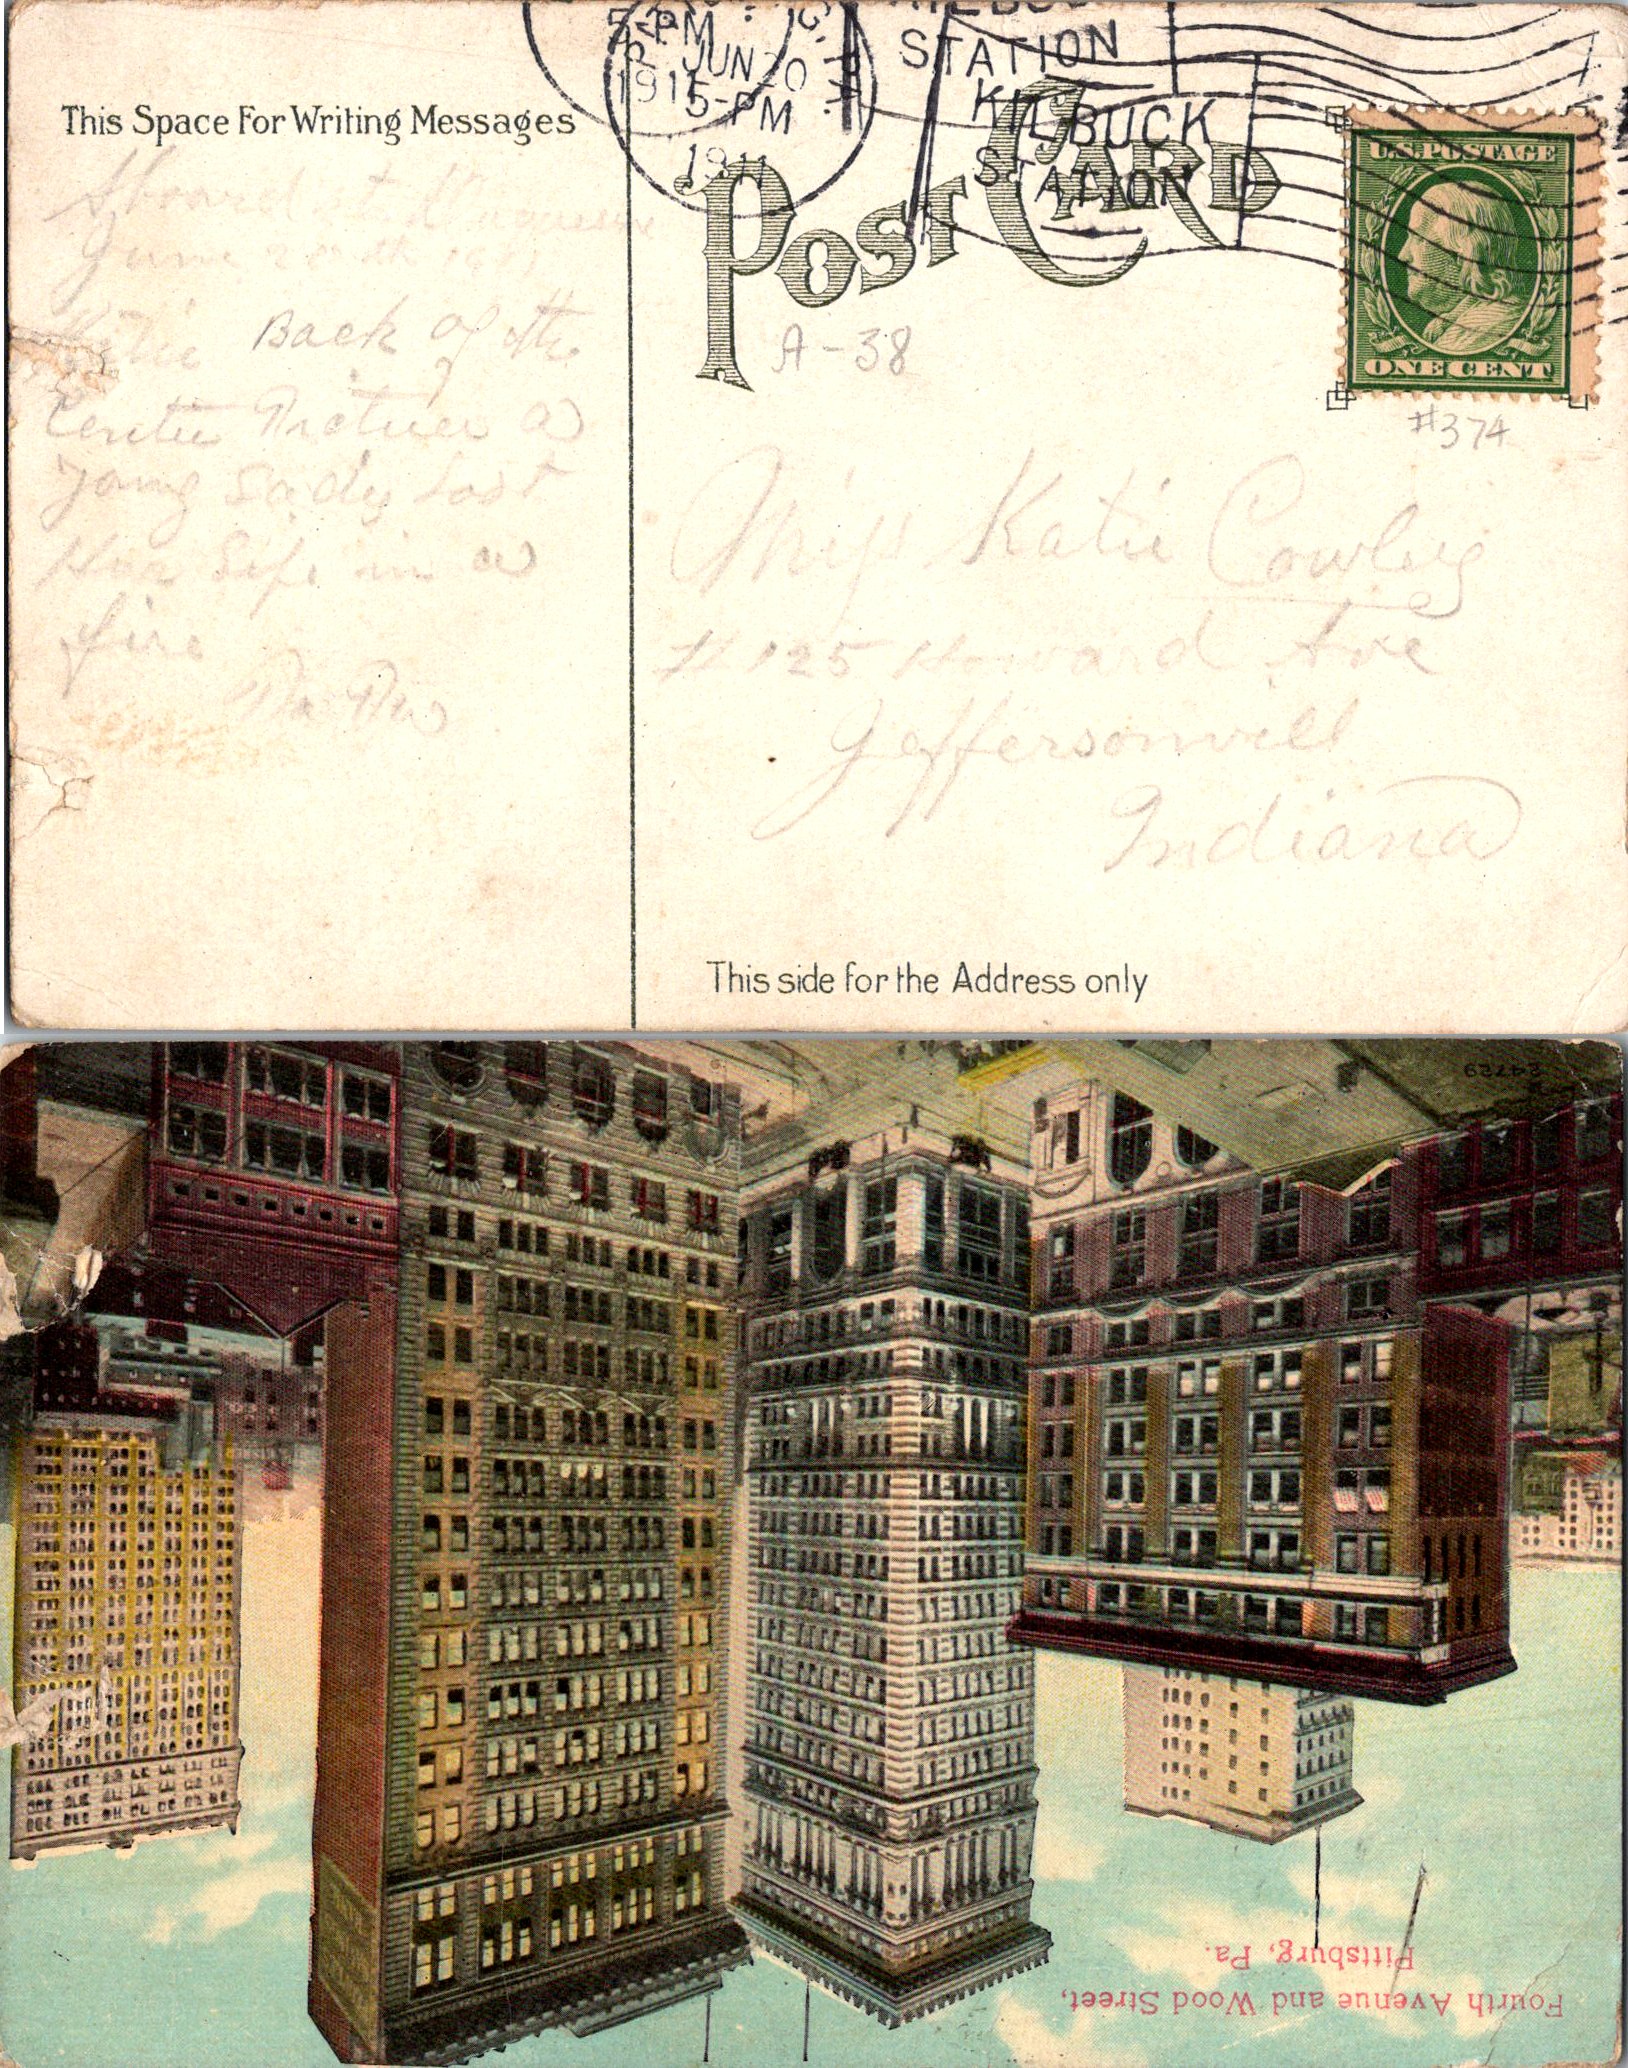 5-PM
1911
JUN 20
5-PM
1911
STATION
KILBUCK
STATION
This Space For Writing Messages
POST CARD
U.S. POSTAGE
ONE CENT
A-38
#374
Aboard st
June 20th 1911
Katie Back of the
Center Picture a
yong Lady Lost
Her Life in a
fire
Miss Katie Cowley
# 125 Howard Ave
Jeffersonvill
Indiana
This side for the Address only
24729
Fourth Avenue and Wood Street,
Pittsburg, Pa.